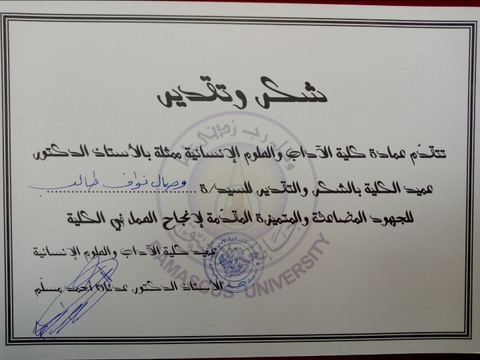 شكر وتقدير
تتقدّم عمادة كلية الآداب والعلوم الإنسانية ممثلة بالأستاذ الدكتور
عميد الكلية بالشكر والتقدير للسيد/ة وصال نواف طالب
للجهود المضاعفة والمتميزة المقدّمة لإنجاح العمل في الكلية
عميد كلية الآداب والعلوم الإنسانية
الأستاذ الدكتور عدنان أحمد مسلّم
وقل رب زدني علما
DAMASCUS UNIVERSITY